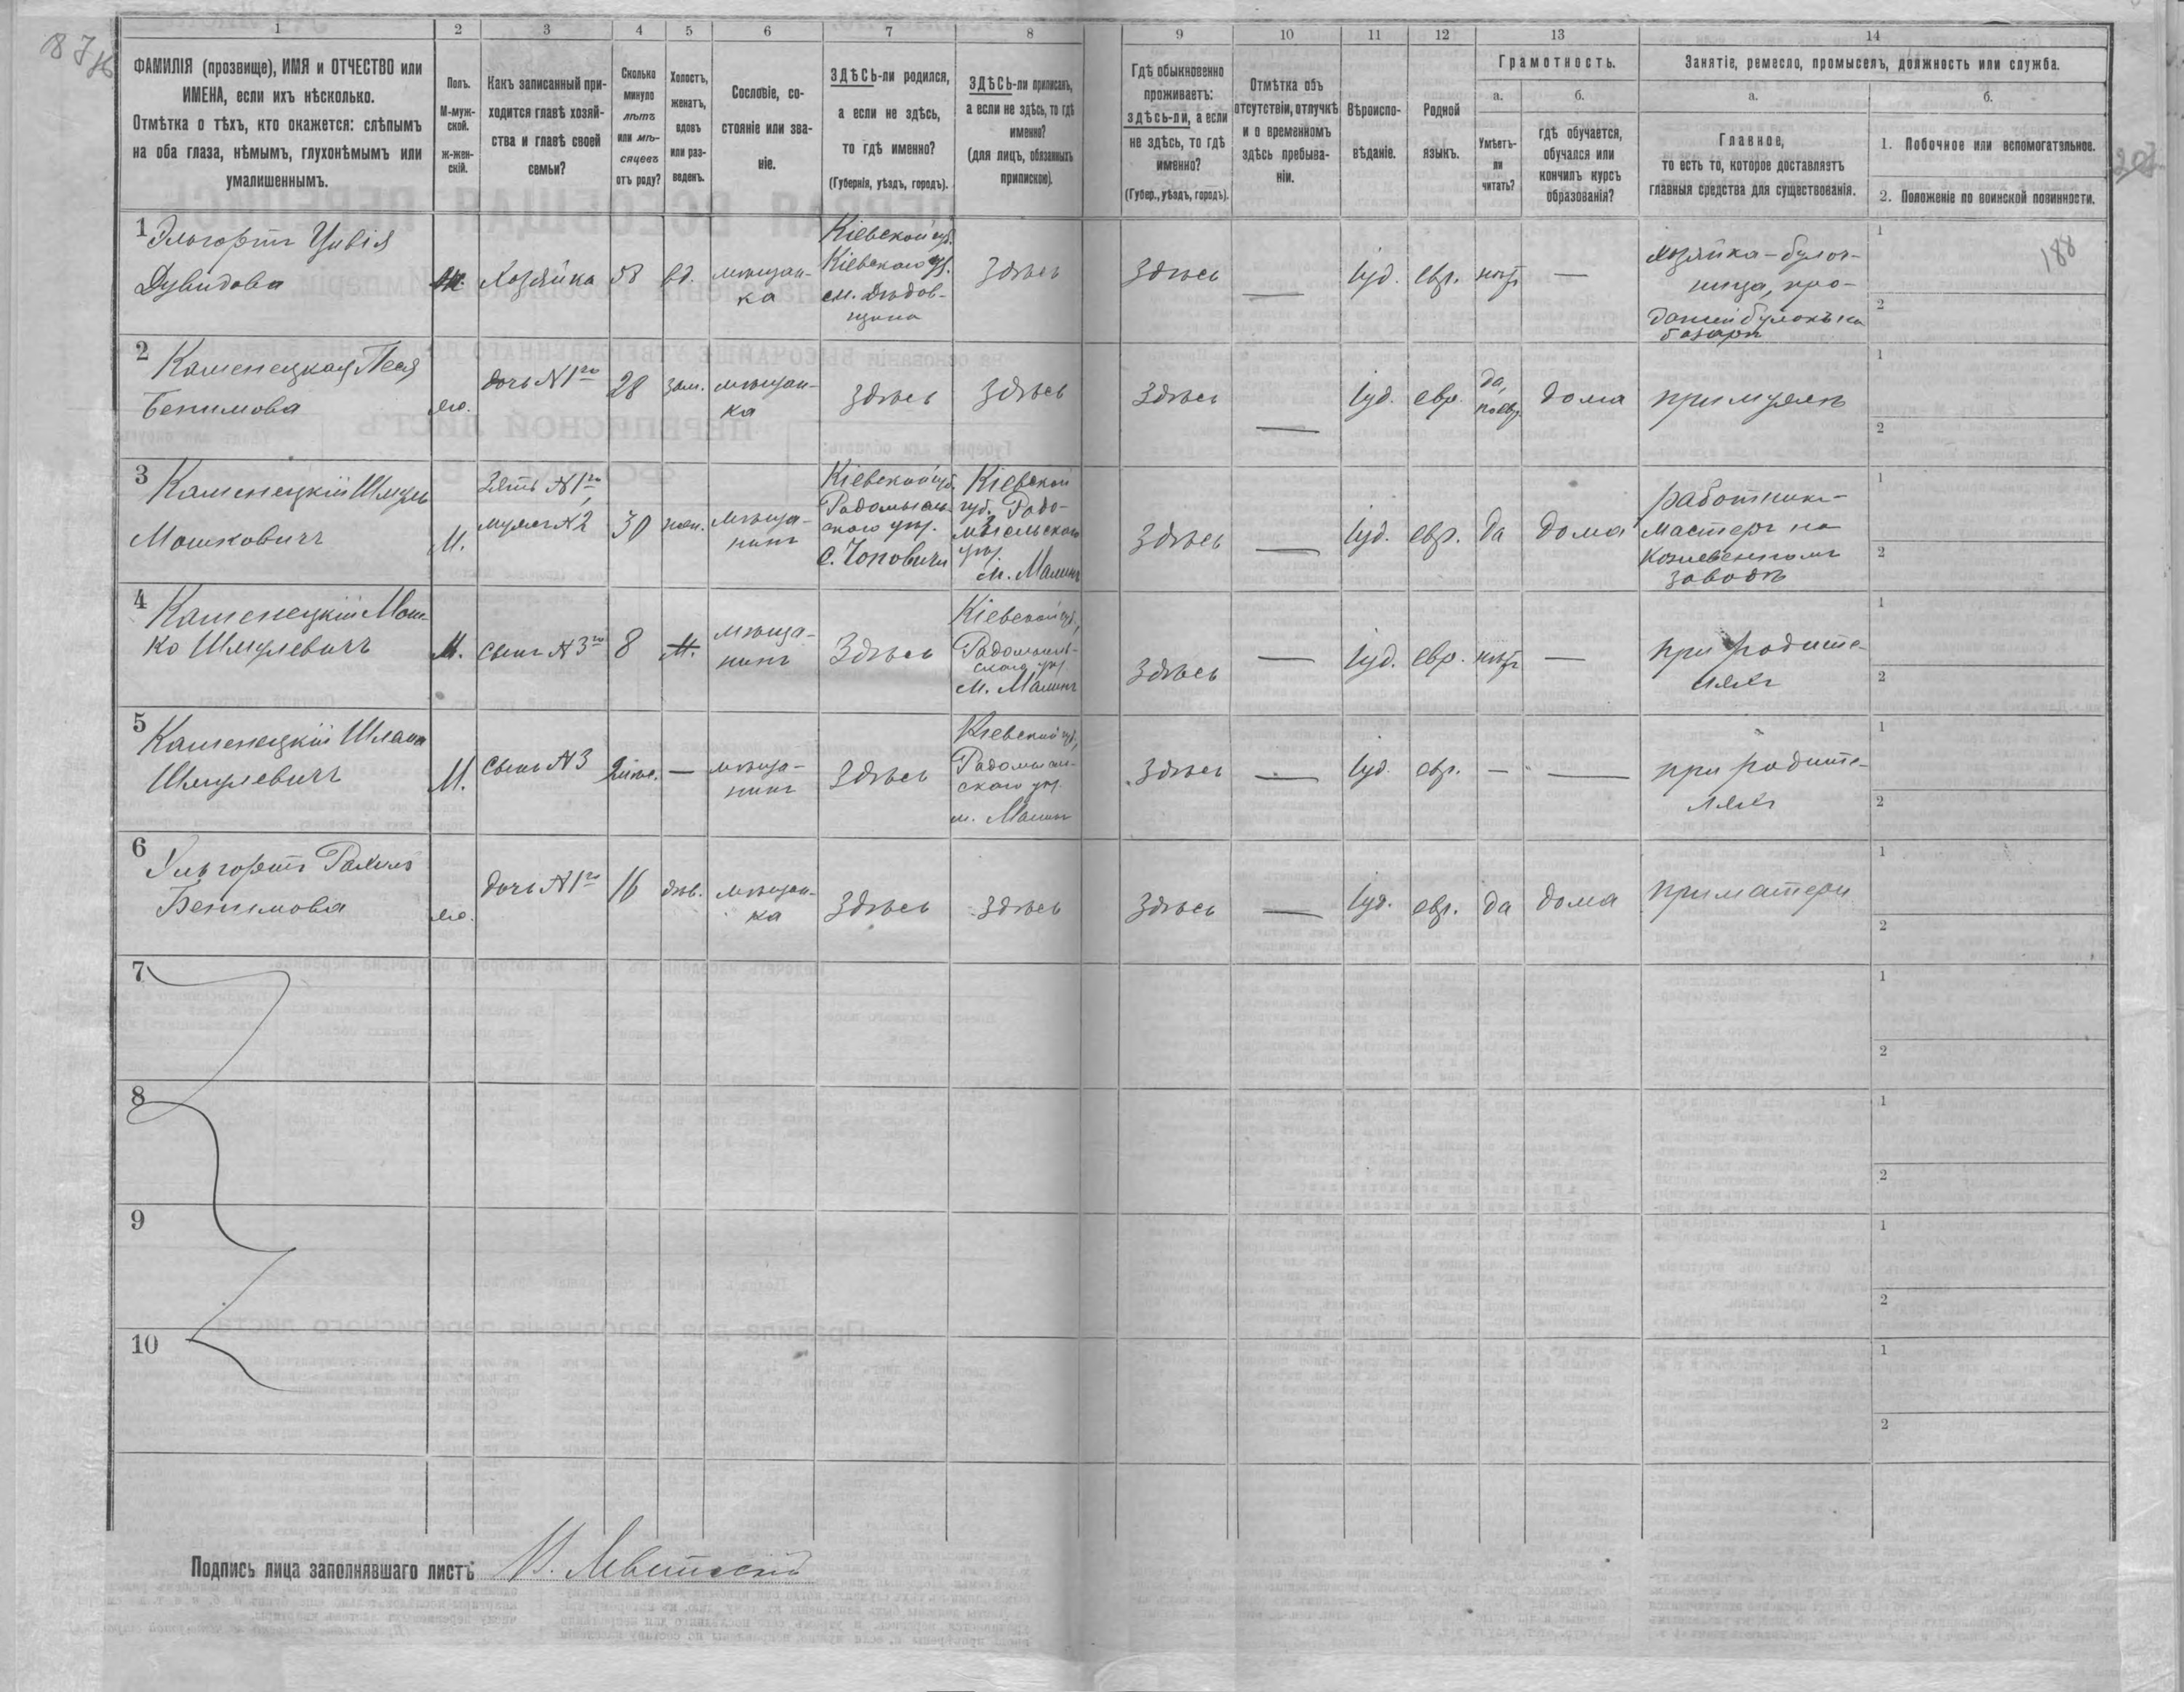 1 2 3 4 5 6 7 8 9 10 11 12 13 14
ФАМИЛІЯ (прозвище), ИМЯ и ОТЧЕСТВО или
ИМЕНА, если ихъ нѣсколько.
Отмѣтка о тѣхъ, кто окажется: слѣпымъ
на оба глаза, нѣмымъ, глухонѣмымъ или
умалишеннымъ.
Полъ.
М-муж-
ской.
ж-жен-
скій.
Какъ записанный при-
ходится главѣ хозяй-
ства и главѣ своей
семьи?
Сколько
минуло
лѣтъ
или мѣ-
сяцевъ
отъ роду?
Холостъ,
женатъ,
вдовъ
или раз-
веденъ.
Сословіе, со-
стояніе или зва-
ніе.
ЗДѢСЬ-ли родился,
а если не здѣсь,
то гдѣ именно?
(Губернія, уѣздъ, городъ).
ЗДѢСЬ-ли приписанъ,
а если не здѣсь, то гдѣ
именно?
(для лицъ, обязанныхъ
припискою).
Гдѣ обыкновенно
проживаетъ:
здѣсь-ли, а если
не здѣсь, то гдѣ
именно?
(Губер., уѣздъ, городъ).
Отмѣтка объ
отсутствіи, отлучкѣ
и о временномъ
здѣсь пребыва-
ніи.
Вѣроиспо-
вѣданіе.
Родной
языкъ.
Грамотность.
а.
Умѣетъ-
ли
читать?
б.
гдѣ обучается,
обучался или
кончилъ курсъ
образованія?
Занятіе, ремесло, промыселъ, должность или служба.
а.
Главное,
то есть то, которое доставляетъ
главныя средства для существованія.
б.
1. Побочное или вспомогательное.
2. Положеніе по воинской повинности.
188
1 Эльгортъ Цивія
Дувидова
Хозяйка
58
вд.
мѣщан-
ка
Кіевской губ.
Кіевскаго у.
м.
Здѣсь
Здѣсь
—
Іуд.
евр.
нѣтъ
—
Хозяйка - булоч-
ница, про-
1
2
2 Каменецкая Песя
Бенимова
дочь N 1го
28
зам.
мѣщан-
ка
Здѣсь
Здѣсь
Здѣсь
—
Іуд.
евр.
да,
по евр.
дома
при мужѣ
1
2
3 Каменецкій Шмуль
Мошковичъ
М.
Зять N 1го,
мужъ N 2
30
жен.
мѣща-
нинъ
Кіевской губ.
Радомысль-
скаго у.
с. Чоповичи
Кіевской
губ. Радо-
мысльскаго
у.
м. Малинъ
Здѣсь
—
Іуд.
евр.
да
дома
работникъ-
мастеръ на
Кожевенномъ
заводѣ
1
2
4 Каменецкій Мош-
ко Шмулевичъ
М.
сынъ N 3го
8
мѣща-
нинъ
Здѣсь
Кіевской губ.,
Радомысль-
скаго у.
м. Малинъ
Здѣсь
—
Іуд.
евр.
нѣтъ
—
при родите-
ляхъ
1
2
5 Каменецкій
Шмулевичъ
М.
сынъ N 3
—
мѣща-
нинъ
Здѣсь
Кіевской губ.,
Радомысль-
скаго у.
м. Малинъ
Здѣсь
—
Іуд.
евр.
—
—
при родите-
ляхъ
1
2
6 Эльгортъ Рахиль
Бенимова
дочь N 1го
16
дѣв.
мѣщан-
ка
Здѣсь
Здѣсь
Здѣсь
—
Іуд.
евр.
да
дома
при матери
1
2
7
1
2
8
1
2
9
1
2
10
1
2
Подпись лица заполнявшаго листъ: